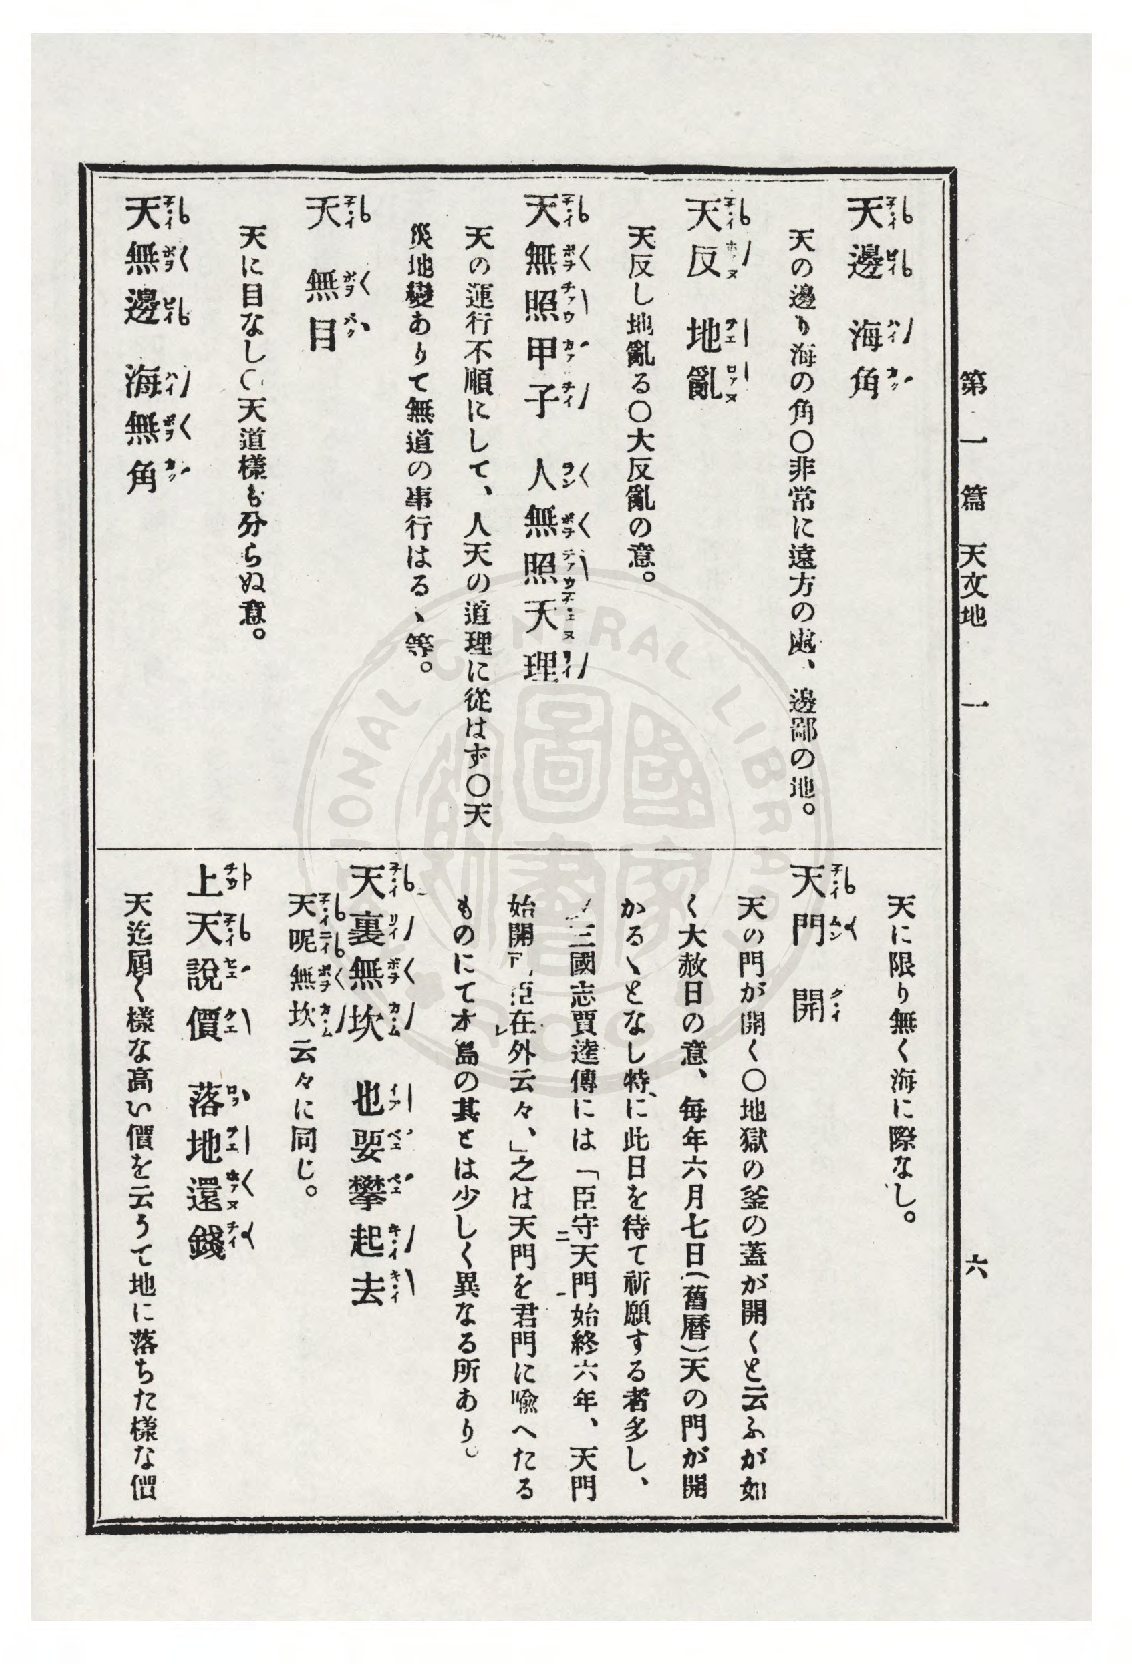 第一篇 天文地 一
六
天邊 海角
天の邊り海の角〇非常に遠方の處、邊鄙の地。
天反 地亂
天反し地亂る〇大反亂の意。
天無照甲子 人無照天理
天の運行不順にして、人天の道理に從はず〇天
災地變ありて無道の事行はるヽ等。
天 無目
天に目なし〇天道樣も分らぬ意。
天無邊 海無角
天に限り無く海に際なし。
天門 開
天の門が開く〇地獄の釜の蓋が開くと云ふが如
く大赦日の意、每年六月七日(舊曆)天の門が開
かるヽとなし特に此日を待て祈願する者多し、
三國志賈逵傳には「臣守天門始終六年、天門
始開 臣在外云々、」之は天門を君門に喩へたる
ものにて本島の其とは少しく異なる所あり。
天裏無坎 也要攀起去
天呢無坎云々に同じ。
上天說價 落地還錢
天迄屆く樣な高い價を云うて地に落ちた樣な價
NATIONAL CENTRAL LIBRARY
國家圖書館